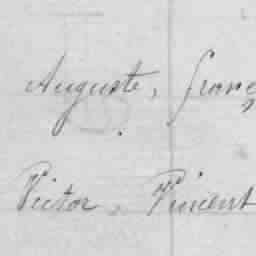 Auguste, franç
Victor, Vincent